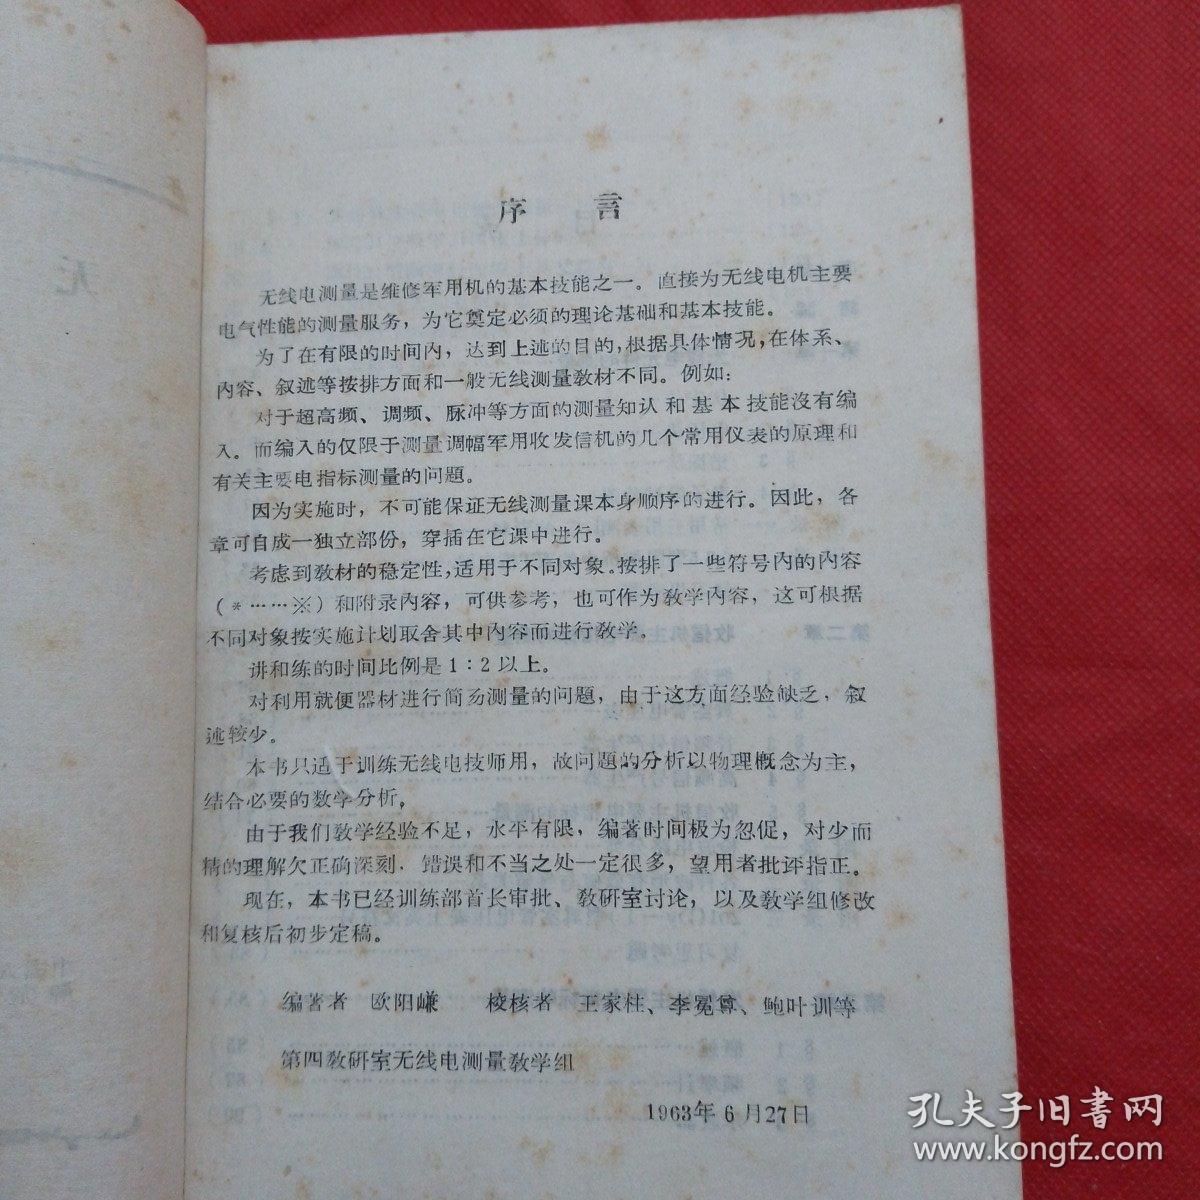 序 言
无线电测量是维修军用机的基本技能之一。直接为无线电机主要
电气性能的测量服务，为它奠定必须的理论基础和基本技能。
为了在有限的时间内，达到上述的目的，根据具体情况，在体系、
内容、叙述等按排方面和一般无线测量教材不同。例如：
对于超高频、调频、脉冲等方面的测量知认和基本技能沒有编
入。而编入的仅限于测量调幅军用收发信机的几个常用仪表的原理和
有关主要电指标测量的问题。
因为实施时，不可能保证无线测量课本身顺序的进行。因此，各
章可自成一独立部份，穿插在它课中进行。
考虑到教材的稳定性，适用于不同对象。按排了一些符号内的内容
（*……※）和附录内容，可供参考，也可作为教学内容，这可根据
不同对象按实施计划取舍其中内容而进行教学。
讲和练的时间比例是1：2以上。
对利用就便器材进行简易测量的问题，由于这方面经验缺乏，叙
述较少。
本书只适于训练无线电技师用，故问题的分析以物理概念为主，
结合必要的数学分析。
由于我们教学经验不足，水平有限，编著时间极为忽促，对少而
精的理解欠正确深刻，错误和不当之处一定很多，望用者批评指正。
现在，本书已经训练部首长审批、教研室讨论，以及教学组修改
和复核后初步定稿。
编著者 欧阳嵰 校核者 王家柱、李冕尊、鲍叶训等
第四教研室无线电测量教学组
1963年6月27日
无
孔夫子旧书网
www.kongfz.com